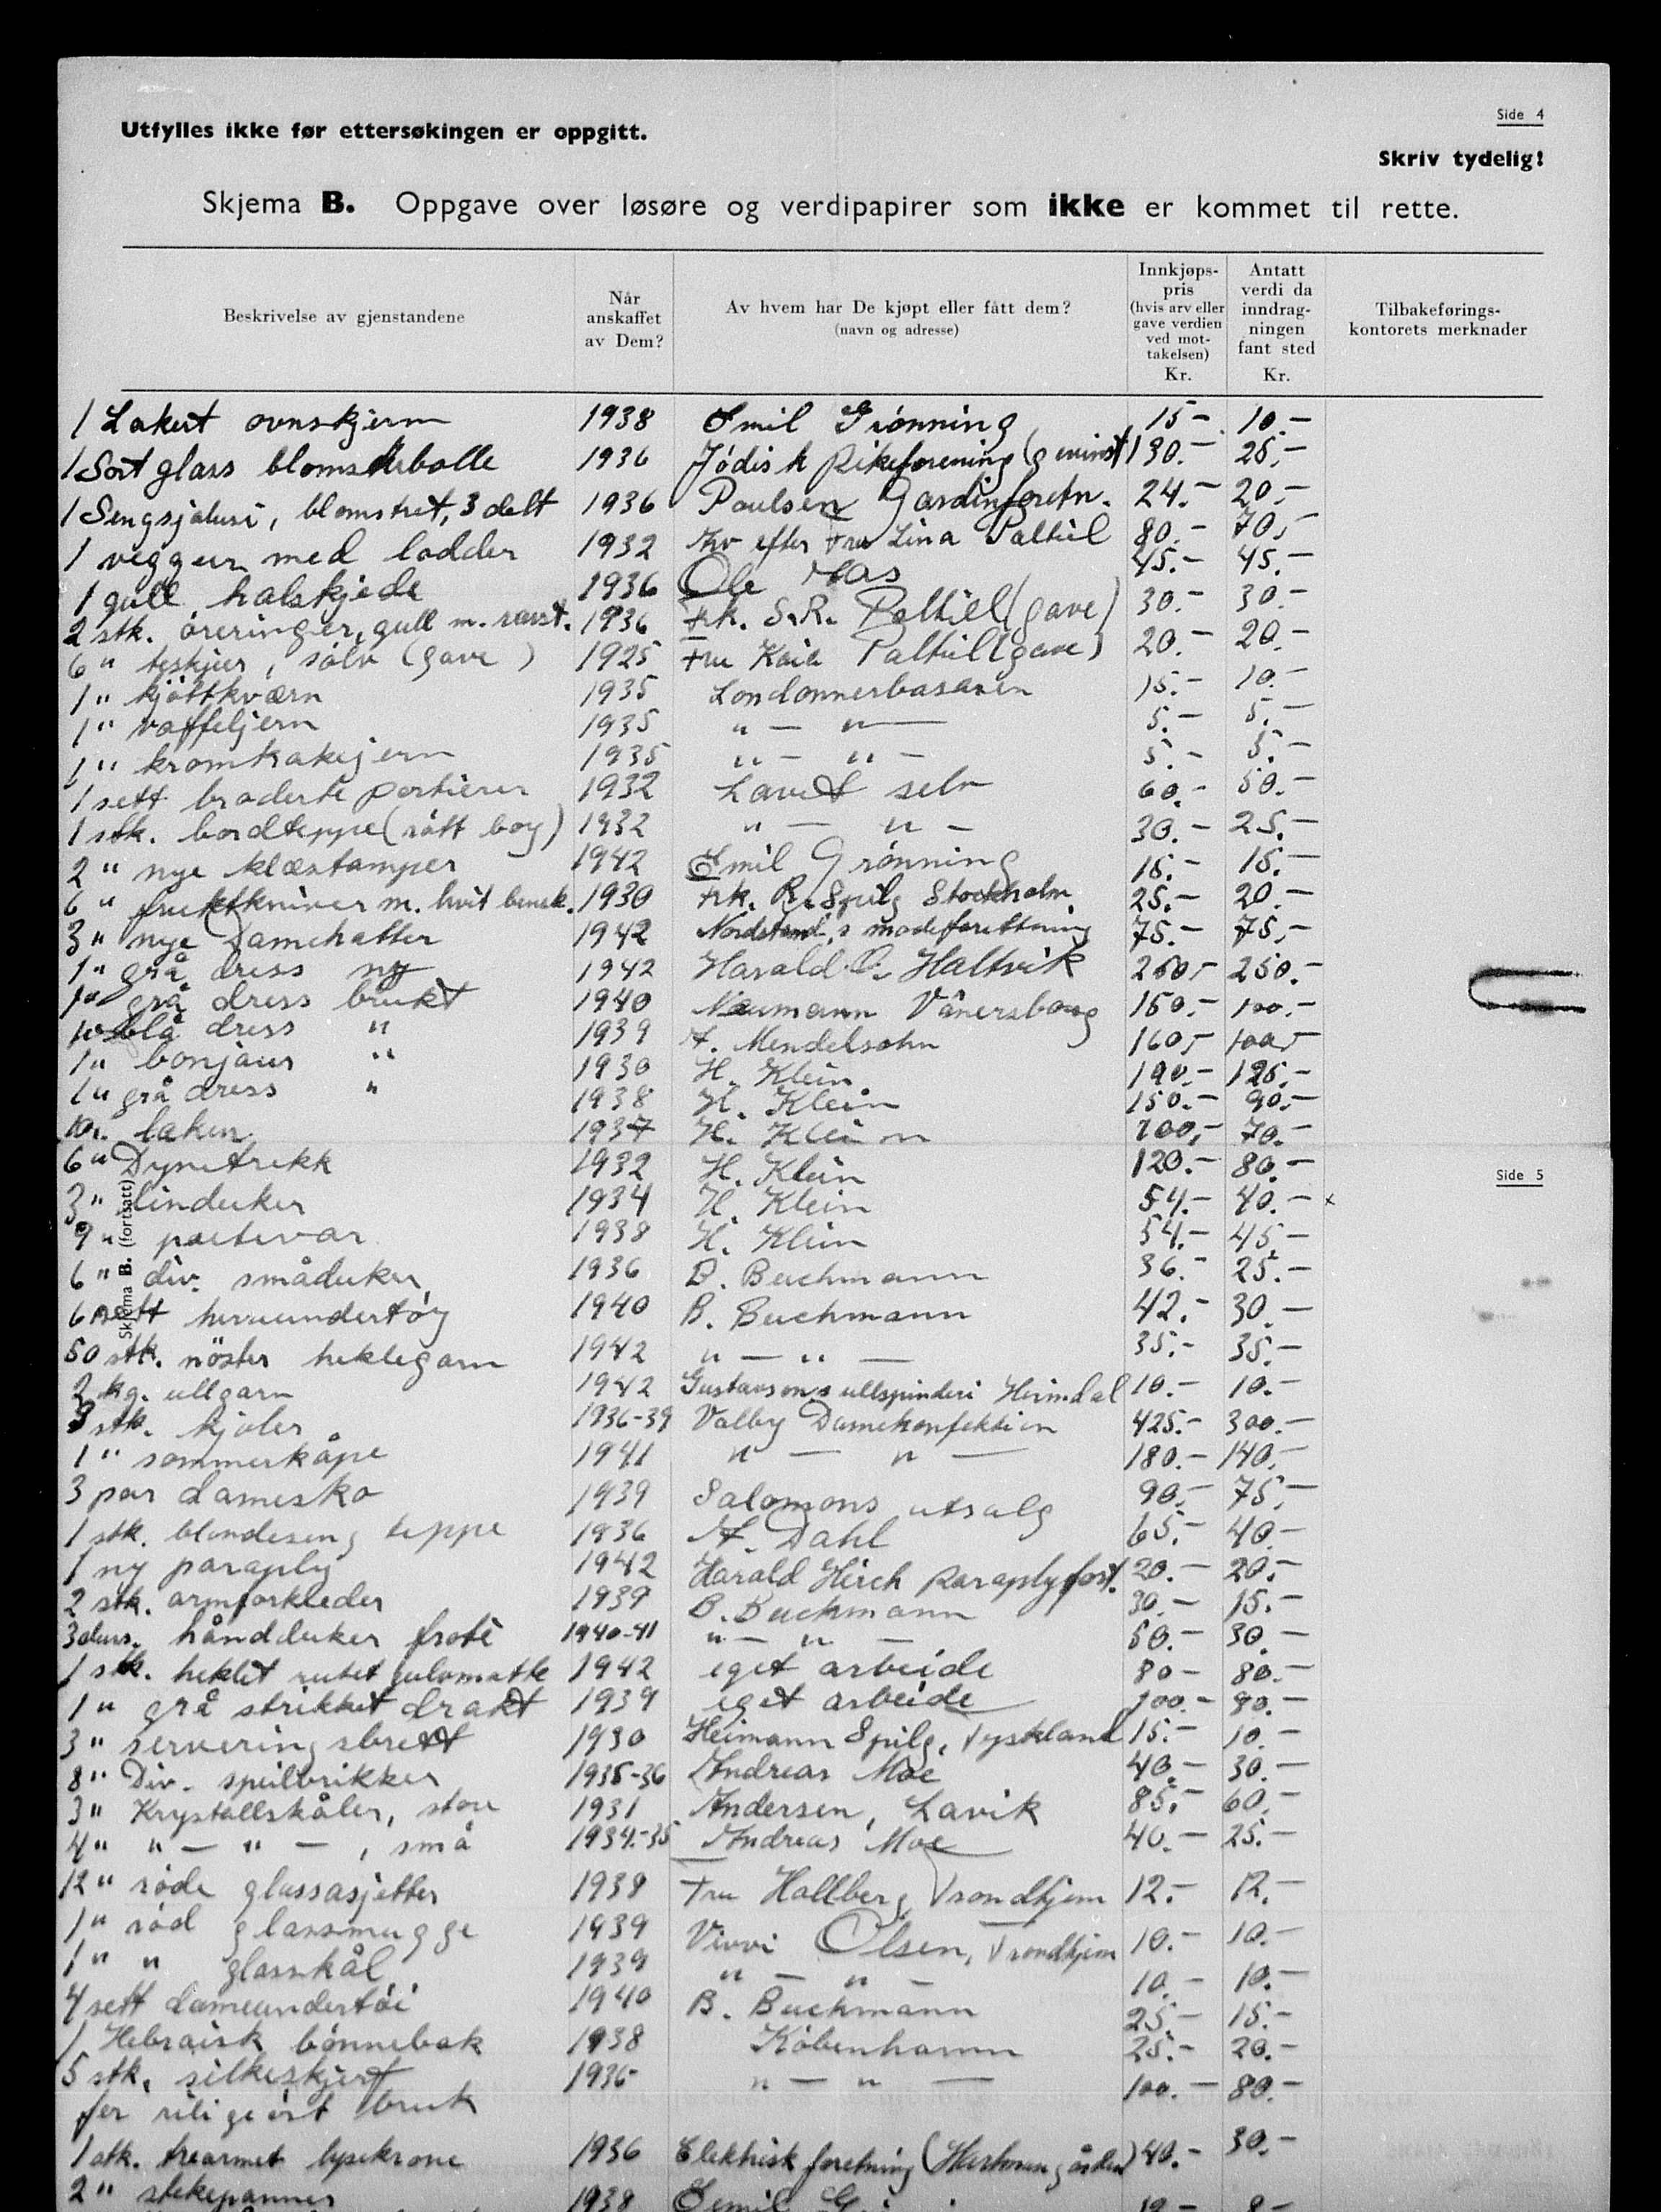 Side 4
Utfylles ikke før ettersøkingen er oppgitt.
Skriv tydelig!
Skjema B. Oppgave over løsøre og verdipapirer som ikke er kommet til rette.
Beskrivelse av gjenstandene
Når anskaffet av Dem?
Av hvem har De kjøpt eller fått dem? (navn og adresse)
Innkjøps-pris (hvis arv eller gave verdien ved mot-takelsen) Kr.
Antatt verdi da inndrag-ningen fant sted Kr.
Tilbakeførings-kontorets merknader
1 Lakert ovnskjerm 1938 Emil Grønning 15.- 10.-
1 Sort glass blomsterbolle 1936 Jødisk Pikeforening (gevinst) 30.- 25.-
1 Sengsjalusi, blomstret, 3 delt 1936 Poulsen Gardinforetn. 24.- 20.-
1 veggur med lodder 1932 Arv efter Fru Lina Paltiel 80.- 70.-
1 gull halskjede 1936 Ole Aas 45.- 45.-
2 stk. øreringer, gull m. 1936 Frk. S.R. Paltiel (gave) 30.- 30.-
6 " teskjeer, sølv (gave) 1925 Fru Kaia Paltiel (gave) 20.- 20.-
1 " kjøttkværn 1935 Londonnerbasaren 15.- 10.-
1 " vaffeljern 1935 " - " - 5.- 5.-
1 " kromkakejern 1935 " - " - 5.- 5.-
1 sett broderte portierer 1932 Lavet selv 60.- 50.-
1 stk. bordteppe (rått boy) 1932 " - " - 30.- 25.-
2 " nye klæstamper 1942 Emil Grønning 15.- 15.-
6 " fruktkniver m. hvit bensk. 1930 Frk. R. Spilg Stockholm 25.- 20.-
3 " nye Damehatter 1942 Nordstrand's modeforettning 75.- 75.-
1 " grå dress ny 1942 Harald O. Haltvik 250.- 250.-
1 " grå dress brukt 1940 Neumann Vänersborg 150.- 100.-
1 " blå dress " 1939 A. Mendelsohn 160.- 100.-
1 " bonjour " 1930 H. Klein 190.- 125.-
1 " grå dress " 1938 H. Klein 150.- 90.-
10 " laken 1937 H. Klein 100.- 70.-
6 " Dynetrekk 1932 H. Klein 120.- 80.-
Side 5
Skjema B. (fortsatt)
3 " linduker 1934 H. Klein 54.- 40.- x
9 " putevar 1938 H. Klein 54.- 45.-
6 " div. småduker 1936 B. Buchmann 36.- 25.-
6 sett herreundertøy 1940 B. Buchmann 42.- 30.-
50 stk. nøster heklegarn 1942 " - " - 35.- 35.-
2 kg. ullgarn 1942 Gustavsons ullspinderi Heimdal 10.- 10.-
stk. kjoler 1936-39 Valby Damekonfektion 425.- 300.-
1 " sommerkåpe 1941 " - " - 180.- 140.-
3 par damesko 1939 Salomons utsalg 90.- 75.-
1 stk. blondeseng teppe 1936 A. Dahl 65.- 40.-
1 ny paraply 1942 Harald Hirch paraplyfort. 20.- 20.-
2 stk. armforkleder 1939 B. Buchmann 30.- 15.-
3 dus. håndduker frote 1940-41 " - " - 50.- 30.-
1 stk. heklet rutet gulvmatte 1942 eget arbeide 80.- 80.-
1 " grå strikket drakt 1939 eget arbeide 100.- 90.-
3 " serveringsbrett 1930 Heimann Spilg, Tyskland 15.- 10.-
8 " Div. speilbrikker 1935-36 Andreas Moe 40.- 30.-
3 " Krystallskåler, store 1931 Andersen, Lavik 85.- 60.-
4 " " - " -, små 1934-35 Andreas Moe 40.- 25.-
12 " røde glassasjetter 1939 Fru Hallberg Trondhjem 12.- 12.-
1 " rød glassmugge 1939 Vivvi Olsen, Trondhjem 10.- 10.-
1 " " glasskål 1939 " - " - 10.- 10.-
4 sett dameundertøi 1940 B. Buchmann 25.- 15.-
1 Hebraisk bønnebok 1938 København 25.- 20.-
5 stk. silkeskjerf 1936 " - " - 100.- 80.-
for religiøst bruk
1 stk. trearmet lysekrone 1936 Elektrisk foretning (Hartmangården) 40.- 30.-
2 " stekepanner 1938 Emil